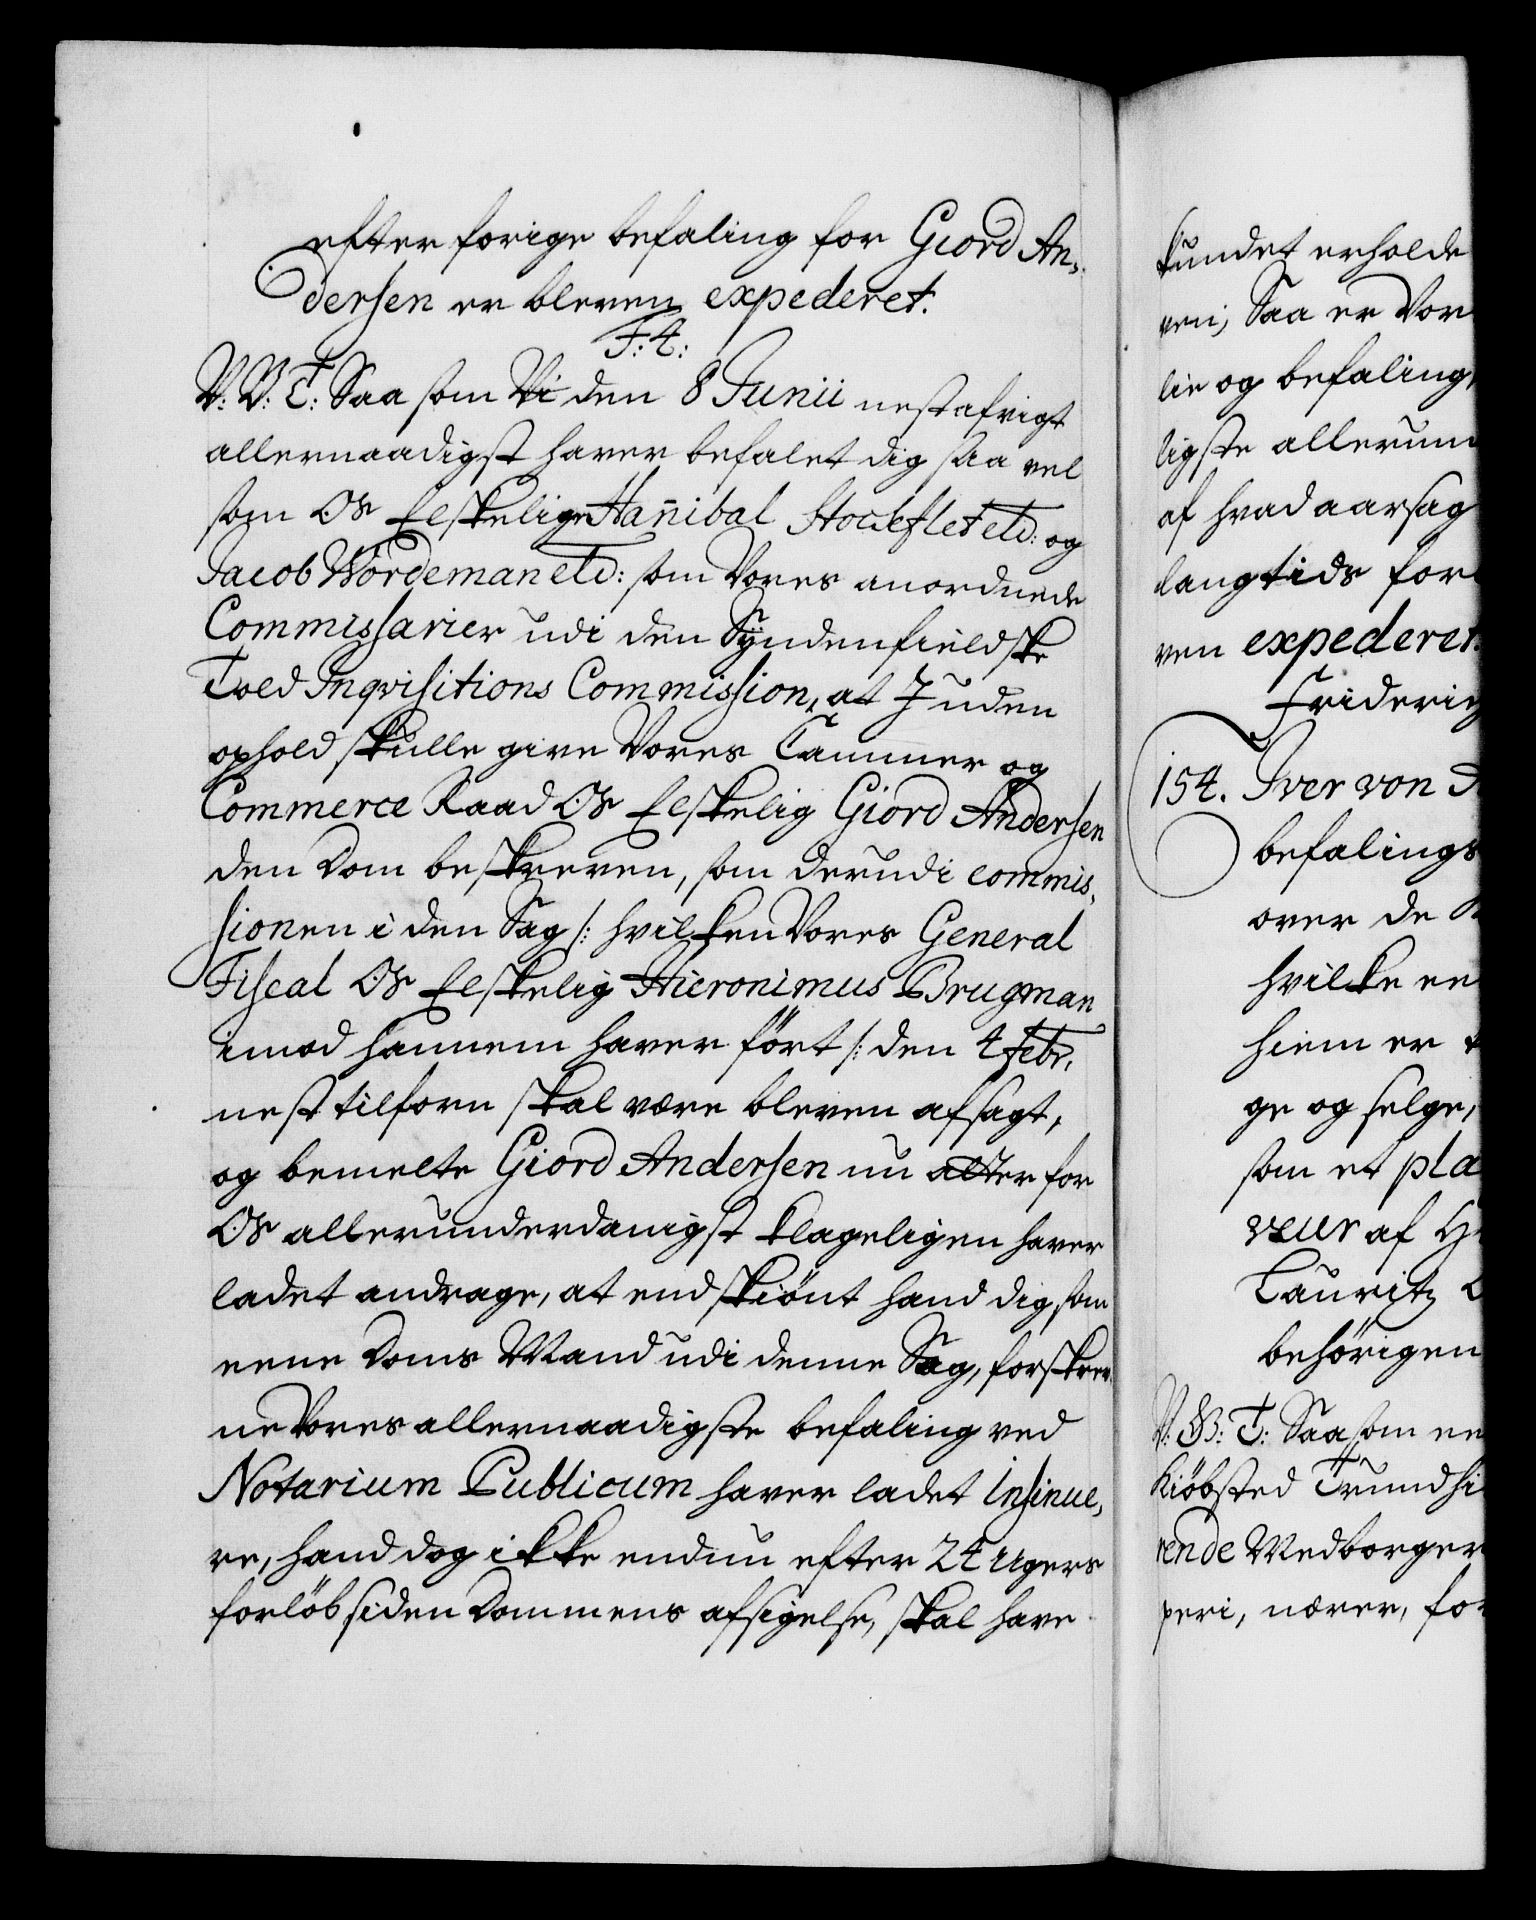 efter forige befaling for Giord An-
dersen er bleven expederet.
F: 4:
V: V: T: Saasom Vi den 8 Junii nestafvigt
allernaadigst haver befalet dig saa vel
som Os Elskelige Hannibal Stockflet etc: og
Jacob Wørdeman etc: som Vores anordnede
Commissarier udi den Syndenfieldske
Told Inqvisitions Commission, at I uden
ophold skulle give Vores Cammer og
Commerce Raad Os Elskelig Giord Andersen
den Dom beskreven, som derudi commis-
sionen i den Sag /: hvilken Vores General
Fiscal Os Elskelig Hieronimus Brugman
imod hannem haver ført /: den 4 Febr.
nest tilforn skal være bleven afsagt,
og bemelte Giord Andersen nu atter for
Os allerunderdanigst klageligen haver
ladet andrage, at endskiønt hand dig som
eene Doms Mand udi denne Sag, forskrev-
ne Vores allernaadigste befaling ved
Notarium Publicum haver ladet insinue-
re, hand dog ikke endnu efter 24 Ugers
forløb siden Dommens afsigelse, skal have
kundet erholde
ven; Saa er Vor
lie og befaling,
ligste allerun
af hvad aarsag
langtids for
ven expederet.
Friderig
154. Iver von
befalings
over de
hvilke ee
hiem er
ge og selge,
som et pla
veur af
Lauritz
behørigen
V: G: T: Saasom ee
Kiøbsted Trundhi
rende Medborger
peri, nærer, for